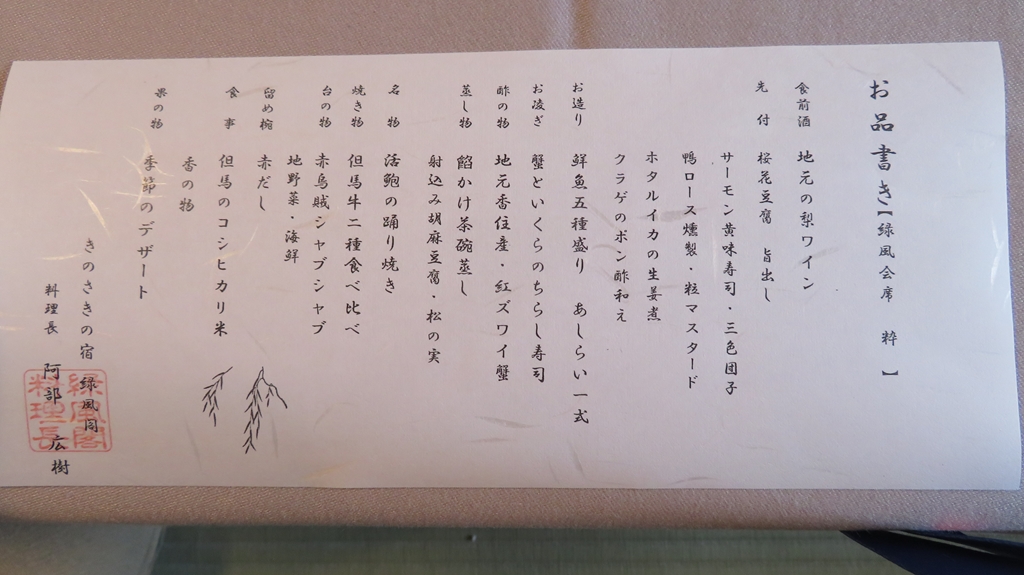 お品書き【緑風会席 粋 】
食前酒 地元の梨ワイン
先付 桜花豆腐 旨出し
サーモン黄味寿司・三色団子
鴨ロース燻製・粒マスタード
ホタルイカの生姜煮
クラゲのポン酢和え
お造り 鮮魚五種盛り あしらい一式
お凌ぎ 蟹といくらのちらし寿司
酢の物 地元香住産・紅ズワイ蟹
蒸し物 餡かけ茶碗蒸し
射込み胡麻豆腐・松の実
名物 活鮑の踊り焼き
焼き物 但馬牛二種食べ比べ
台の物 赤烏賊シャブシャブ
地野菜・海鮮
留め椀 赤だし
食事 但馬のコシヒカリ米
香の物
果の物 季節のデザート
きのさきの宿 緑風閣
料理長 阿部 広樹
緑風閣
料理長